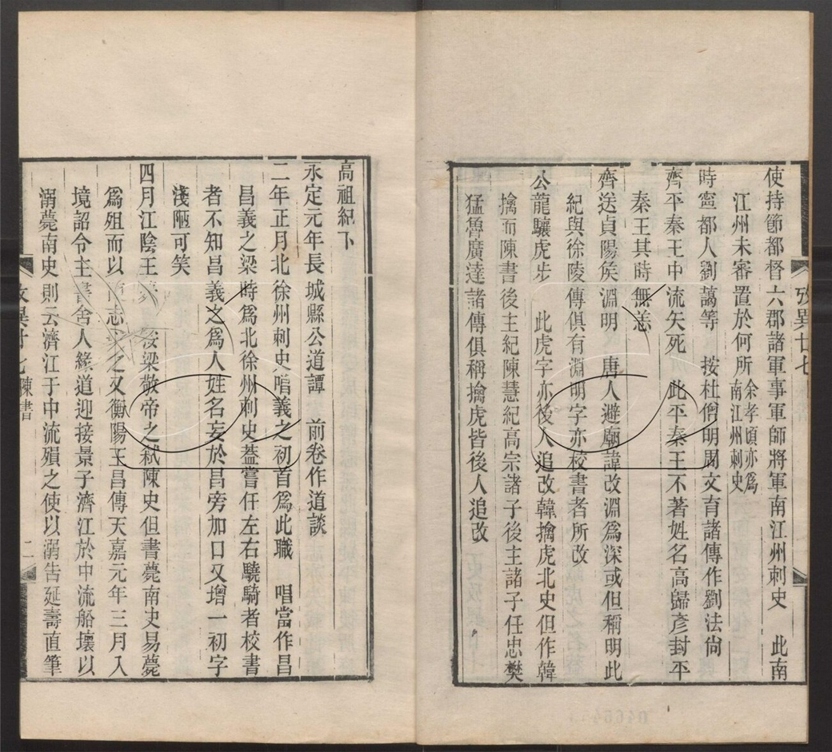 使持節都督六郡諸軍事軍師將軍南江州刺史 此南
江州未審置於何所余孝頃亦爲南江州刺史
時寧都人劉藹等 按杜僧明周文育諸傳作劉法尙
齊平秦王中流矢死 此平秦王不著姓名高歸彥封平
秦王其時無恙
齊送貞陽矦淵明 唐人避廟諱改淵爲深或但稱明此
紀與徐陵傳俱有淵明字亦校書者所改
公龍驤虎步 此虎字亦後人追改韓擒虎北史但作韓
擒而陳書後主紀陳慧紀高宗諸子後主諸子任忠樊
猛魯廣達諸傳俱稱擒虎皆後人追改
攷異廿七
高祖紀下
永定元年長城縣公道譚 前卷作道談
二年正月北徐州刺史唱義之初首爲此職 唱當作昌
昌義之梁時爲北徐州刺史蓋嘗任左右驍騎者校書
者不知昌義之爲人姓名妄於昌旁加口又增一初字
淺陋可笑
四月江陰王薨 梁敬帝之弒陳史但書薨南史易薨
爲殂而以 志 之又衡陽王昌傳天嘉元年三月入
境詔令主書舍人緣道迎接景子濟江於中流船壞以
溺薨南史則云濟江于中流殞之使以溺吿延壽直筆
攷異廿七陳書 二